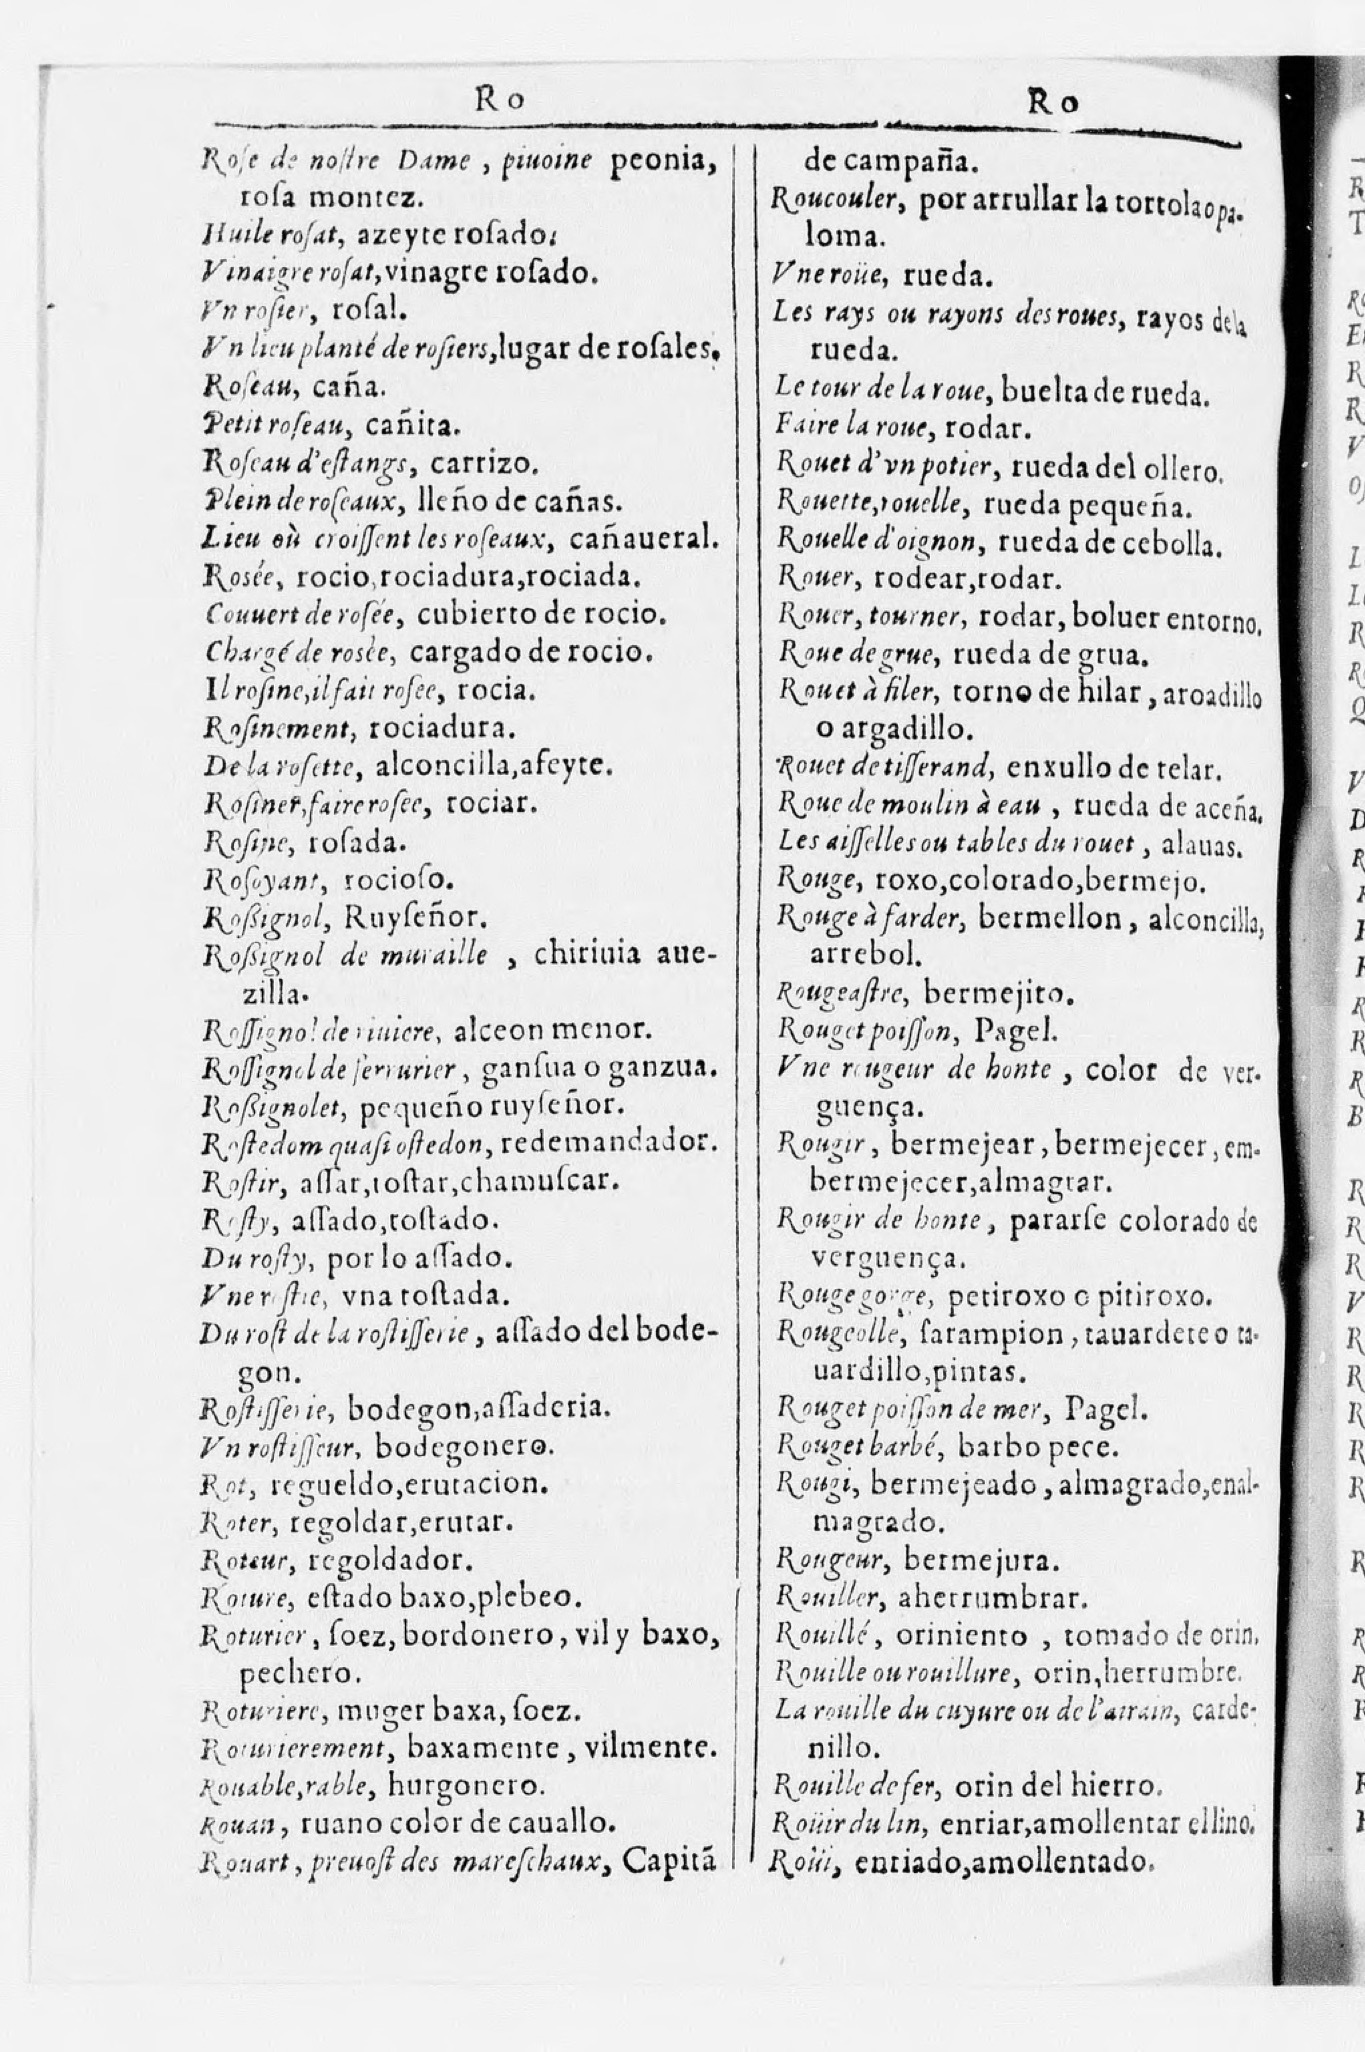 Ro
Roſe de noſtre Dame, piuoine peonia,
roſa montez.
Huile roſat, azeyte roſado:
Vinaigre roſat, vinagre roſado.
Vn roſier, roſal.
Vn lieu planté de roſiers, lugar de roſales.
Roſeau, caña.
Petit roſeau, cañita.
Roſeau d'eſtangs, carrizo.
Plein de roſeaux, lleño de cañas.
Lieu où croiſſent les roſeaux, cañaueral.
Rosée, rocio, rociadura, rociada.
Couuert de roſée, cubierto de rocio.
Chargé de rosèe, cargado de rocio.
Il roſine, il fait roſee, rocia.
Roſinement, rociadura.
De la roſette, alconcilla, afeyte.
Roſiner, faire roſee, rociar.
Roſine, roſada.
Roſoyant, rocioſo.
Roßignol, Ruyſeñor.
Roßignol de muraille, chiriuia aue-
zilla.
Roſſignol de riuiere, alceon menor.
Roſſignol de ſerrurier, ganſua o ganzua.
Roßignolet, pequeño ruyſeñor.
Roſtedom quaſi oſtedon, redemandador.
Roſtir, aſſar, toſtar, chamuſcar.
Roſty, aſſado, toſtado.
Du roſty, por lo aſſado.
Vne roſtie, vna toſtada.
Du roſt de la roſtiſſerie, aſſado del bode-
gon.
Roſtiſſerie, bodegon, aſſaderia.
Vn roſtiſſeur, bodegonero.
Rot, regueldo, erutacion.
Roter, regoldar, erutar.
Roteur, regoldador.
Roture, eſtado baxo, plebeo.
Roturier, ſoez, bordonero, vil y baxo,
pechero.
Roturiere, muger baxa, ſoez.
Roturierement, baxamente, vilmente.
Rouable, rable, hurgonero.
Rouan, ruano color de cauallo.
Rouart, preuoſt des mareſchaux, Capitã
Ro
de campaña.
Roucouler, por arrullar la tortola o pa-
loma.
Vne roüe, rueda.
Les rays ou rayons des roues, rayos de la
rueda.
Le tour de la roue, buelta de rueda.
Faire la roue, rodar.
Rouet d'vn potier, rueda del ollero.
Rouette, rouelle, rueda pequeña.
Rouelle d'oignon, rueda de cebolla.
Rouer, rodear, rodar.
Rouer, tourner, rodar, boluer entorno.
Roue de grue, rueda de grua.
Rouet à filer, torno de hilar, aroadillo
o argadillo.
Rouet de tiſſerand, enxullo de telar.
Roue de moulin à eau, rueda de aceña.
Les aiſſelles ou tables du rouet, alauas.
Rouge, roxo, colorado, bermejo.
Rouge à farder, bermellon, alconcilla,
arrebol.
Rougeaſtre, bermejito.
Rouget poiſſon, Pagel.
Vne rougeur de honte, color de ver-
guença.
Rougir, bermejear, bermejecer, em-
bermejecer, almagrar.
Rougir de honte, pararſe colorado de
verguença.
Rouge gorge, petiroxo o pitiroxo.
Rougeolle, ſarampion, tauardete o ta-
uardillo, pintas.
Rouget poiſſon de mer, Pagel.
Rouget barbé, barbo pece.
Rougi, bermejeado, almagrado, enal-
magrado.
Rougeur, bermejura.
Rouiller, aherrumbrar.
Rouillé, oriniento, tomado de orin.
Rouille ou rouillure, orin, herrumbre.
La rouille du cuyure ou de l'airain, carde-
nillo.
Rouille de fer, orin del hierro.
Roüir du lin, enriar, amollentar el lino.
Roüi, enriado, amollentado.